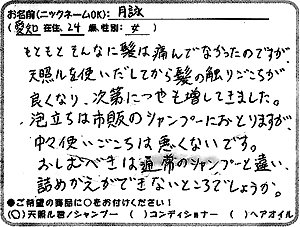 お名前(ニックネームOK): 月詠
(愛知 在住、24 歳、性別: 女 )
もともとそんなに髪は痛んでなかったのですが、
天照ルを使いだしてから髪の触りごこちが
良くなり、次第につやも増してきました。
泡立ちは市販のシャンプーにおとりますが、
中々使いごこちは悪くないです。
おしむべきは通常のシャンプーと違い、
詰めがえができないところでしょうか。
●ご希望の商品に○をお付けください!
(○)天照ル君ノシャンプー ( )コンディショナー ( )ヘアオイル